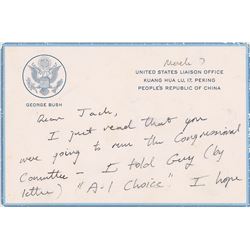 March 7
UNITED STATES LIAISON OFFICE
KUANG HUA LU, 17, PEKING
PEOPLE'S REPUBLIC OF CHINA
GEORGE BUSH
Dear Jack,
I just read that you
were going to run the Congressional
Committee - I told Guy (by
letter) "A-1 Choice". I hope